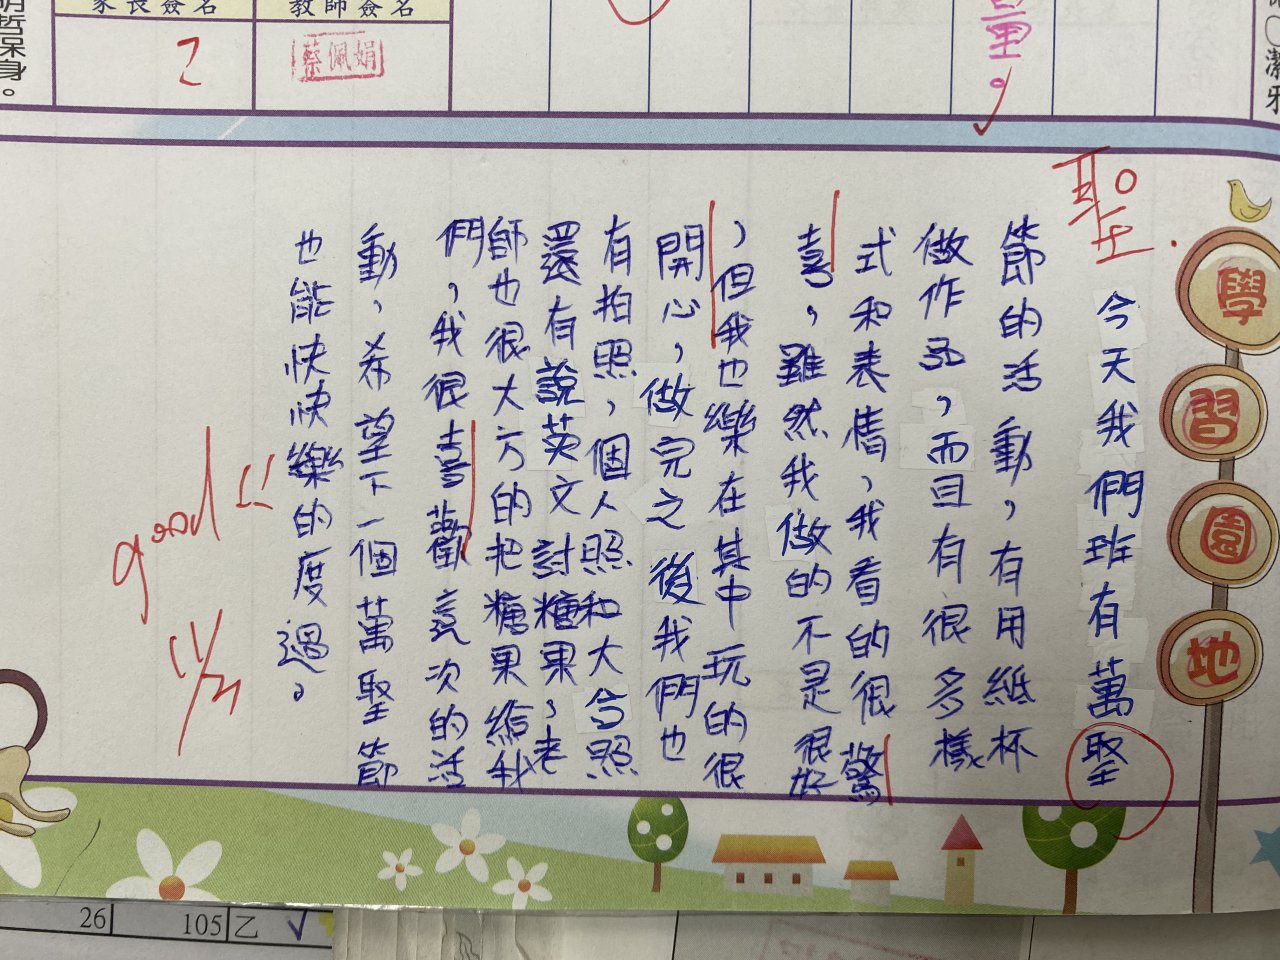 家長簽名
教師簽名
乙
蔡佩娟
明哲保身。
量。
潔
學習園地
聖
今天我們班有萬聖
節的活動,有用紙杯
做作品,而且有很多樣
式和表情,我看的很驚
喜,雖然我做的不是很好
,但我也樂在其中玩的很
開心,做完之後我們也
有拍照,個人照和大合照
還有說英文討糖果,老
師也很大方的把糖果給我
們,我很喜歡這次的活
動,希望下一個萬聖節
也能快快樂的度過。
good!!
26
105
乙